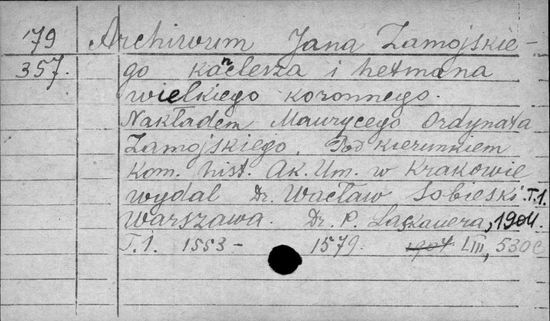 79 Archiwum Jana Zamojskie-
357. go kanclerza i hetmana
wielkiego koronnego.
Nakładem Maurycego Ordynata
Zamojskiego. Pod kierunkiem
Kom. hist. Ak. Um. w Krakowie
wydal Dr. Wacław Sobieski. T.1.
Warszawa. Dr. P. Laskauera, 1904.
T.1. 1553 - 1579. 1904 LIII, 530